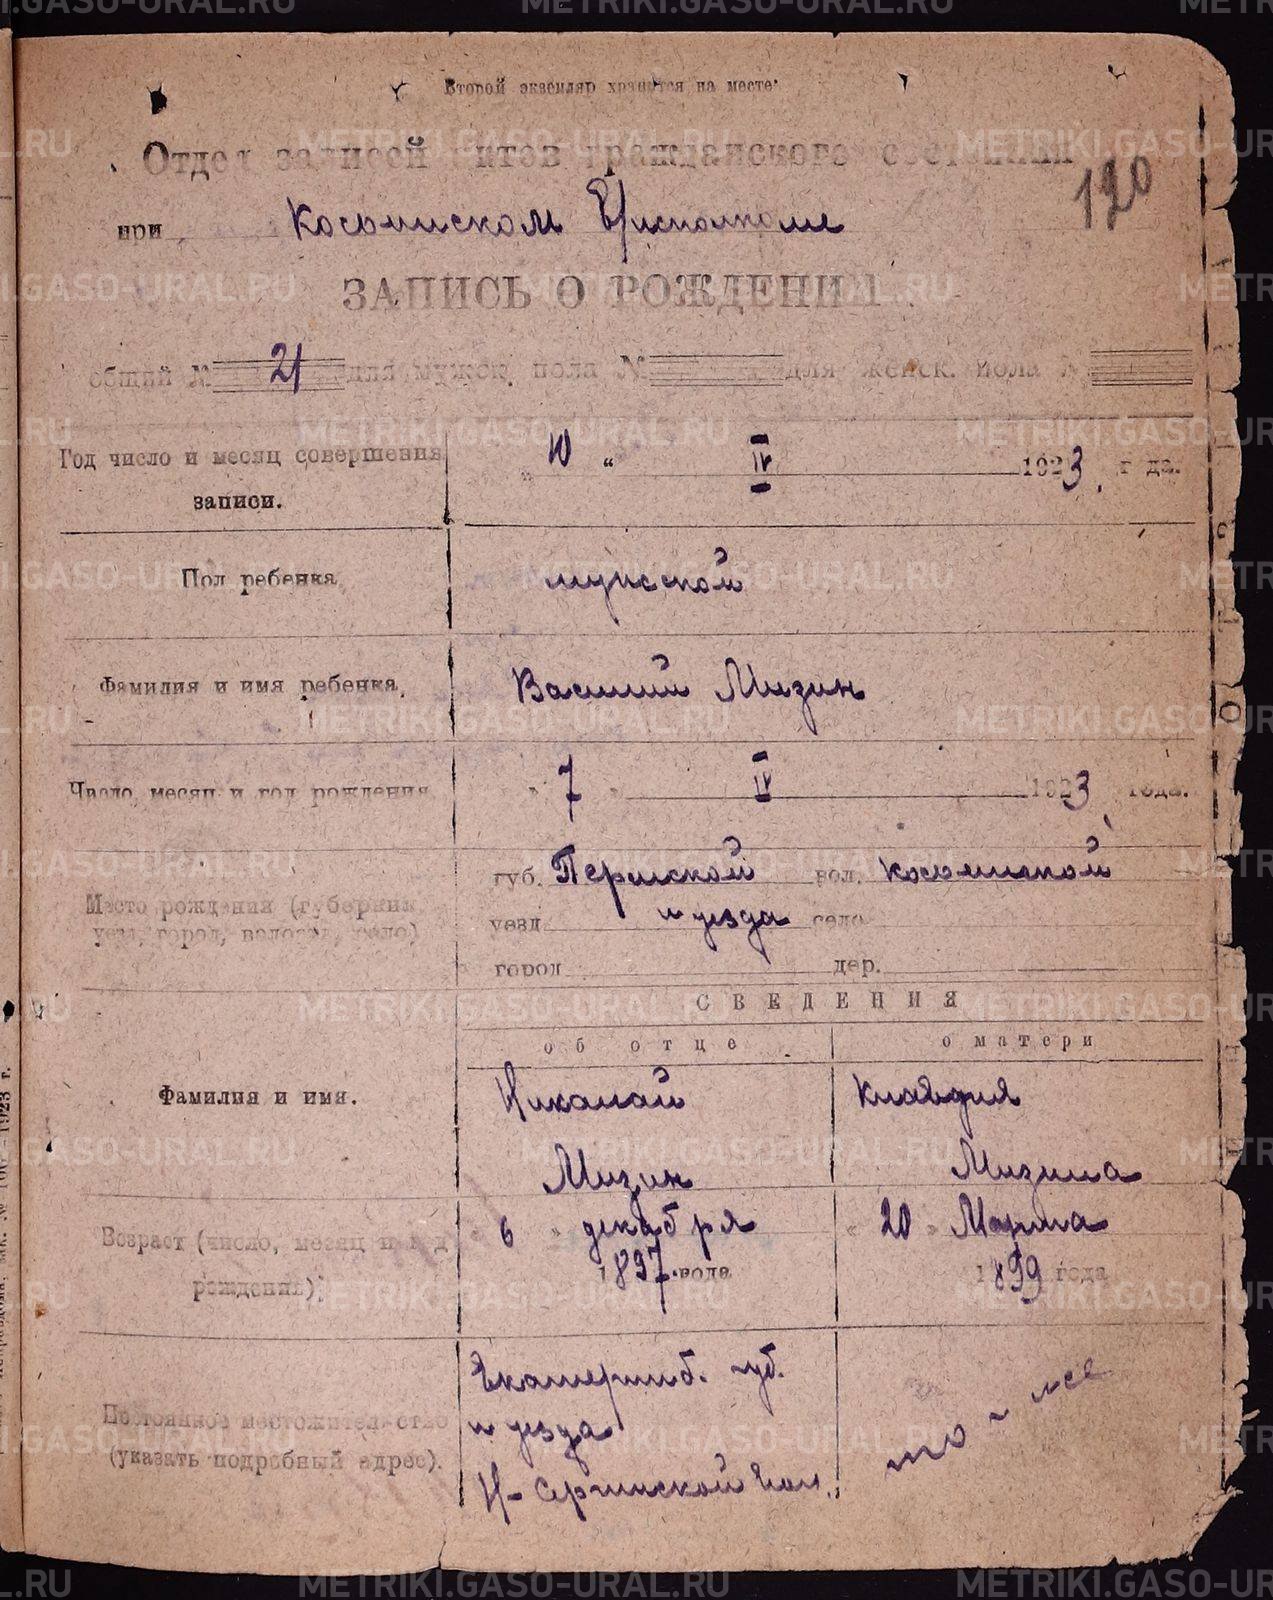 Второй экземляр хранится на месте
Отдел записей актов гражданского состояния
120
при Косьминском Вр исполкоме
ЗАПИСЬ О РОЖДЕНИИ
общий № 21 для мужск. пола № для женск. пола №
Год число и месяц совершения записи.
„ 10 “ IV 1923 года.
Пол ребенка
мужской
Фамилия и имя ребенка.
Василий Мизин
Число, месяц и год рождения
„ 7 „ IV 1923 года.
Место рождения (губерния, уезд, город, волость, село)
губ. Пермской вол. Косьминской
уезд и уезда село
город дер.
СВЕДЕНИЯ
об отце
о матери
Фамилия и имя.
Николай
Мизин
Клавдия
Мизина
Возраст (число, месяц и год рождения).
„ 6 „ декабря
1897 года
„ 20 „ Марта
1899 года
Постоянное местожительство
(указать подробный адрес).
Екатеринб. губ.
и уезда
Н-Сергинской вол.
то-же
METRIKI.GASO-URAL.RU